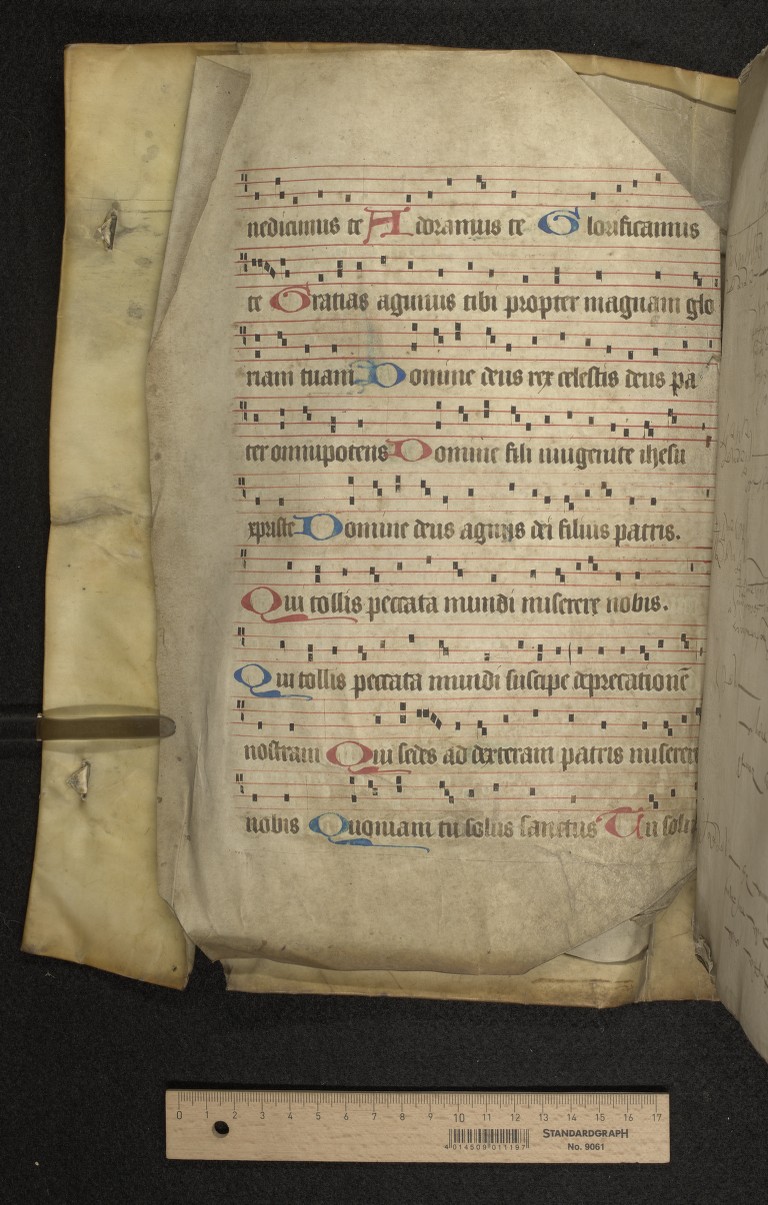 nedicimus te Adoramus te Glorificamus
te Gratias agimus tibi propter magnam glo
riam tuam Domine deus rex celestis deus pa
ter omnipotens Domine fili unigenite ihesu
xpriste Domine deus agnus dei filius patris.
Qui tollis peccata mundi miserere nobis.
Qui tollis peccata mundi suscipe deprecationē
nostram Qui sedes ad dexteram patris misere
nobis Quoniam tu solus sanctus Tu solu
0 1 2 3 4 5 6 7 8 9 10 11 12 13 14 15 16 17
4 014509 011197
STANDARDGRAPH
No. 9061